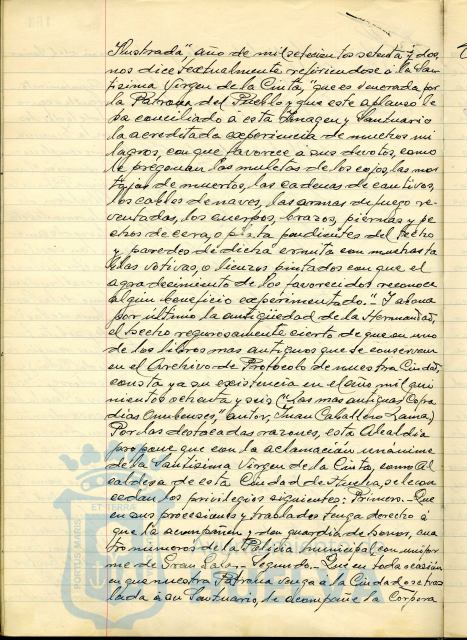 Ilustrada", año de mil setecientos setenta y dos,
nos dice textualmente refiriendose á la San-
tisima Virgen de la Cinta, "que es venerada por
la Patrona del Pueblo y que este aplauso le
ha conciliado á esta Imagen y Santuario
la acreditada experiencia de muchos mi
lagros, con que favorece á sus devotos, como
le prégonan las muletas de los cojos, las mor
tajas de muertos, las cadenas de cautivos,
los cables de naves, las armas de fuego re-
ventadas, los cuerpos, brazos, piernas y pe
chos de cera, o plata pendientes del techo
y paredes de dicha ermita con muchas ta
blas votivas, o lienzos pintados con que el
agradecimiento de los favorecidos reconoce
algún beneficio experimentado."- Y abona
por último la antigüedad de la Hermandad,
el hecho regurosamente cierto de que en uno
de los libros mas antiguos que se conservan
en el Archivo de Protocolo de nuestra Ciudad,
consta ya su existencia en el año mil qui
nientos ochenta y seis ("Las mas antiguas Cofra
dias Onubenses," autor, Juan Caballero
Por las destacadas razones, esta Alcaldia
propone que con la aclamación unanime
de la Santisima Virgen de la Cinta, como Al
caldesa de esta Ciudad de Huelva, se le con
cedan los privilegios siguientes: Primero.- Que
en sus procesiones y traslados tenga derecho á
que la acompañen y den guardia de honor, cua
tro números de la Policia municipal, con unifor
me de Gran Gala.- Segundo.- Que en toda ocasión
en que nuestra Patrona venga a la Ciudad o se tras
lada á su Santuario, le acompañe la Corpora
PORTUS MARIS
ET TERRÆ